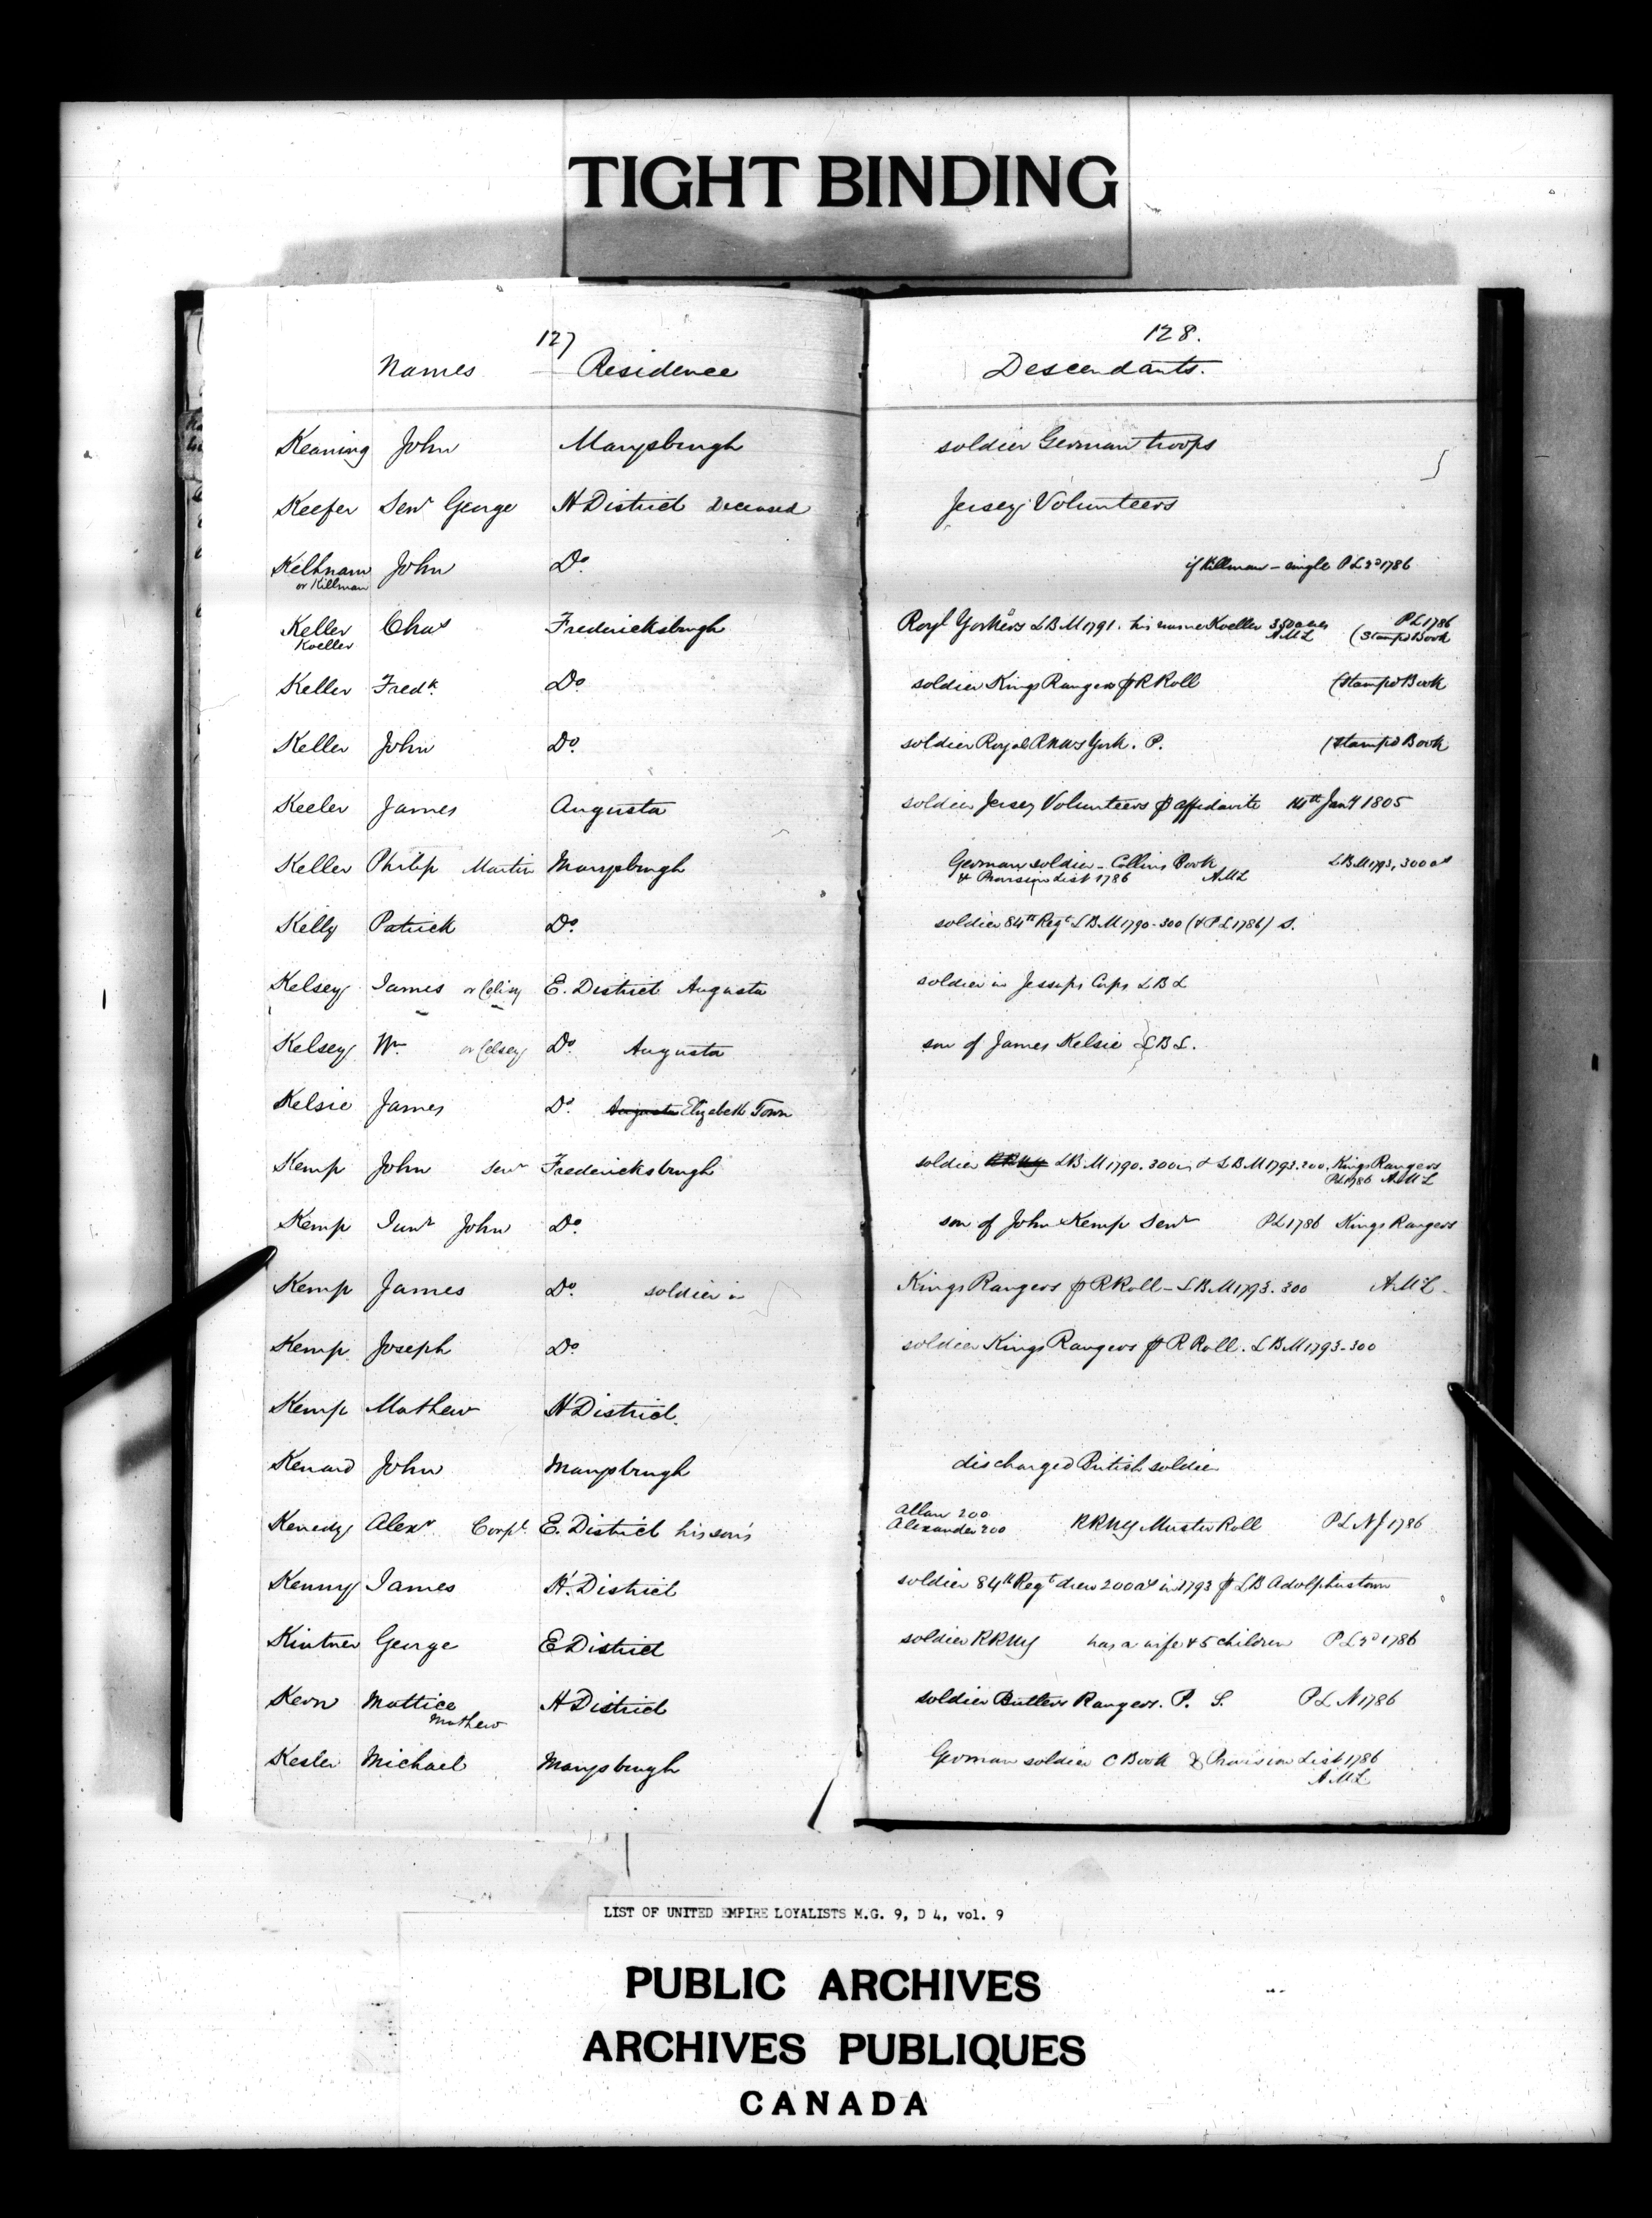 TIGHT BINDING
127
128.
Names Residence Descendants.
Keaning John Marysburgh soldier German troops
Keefer Senr George H District Deceased Jersey Volunteers
Kelhnam John Do. if Killman - single PL 2d 1786
or Killman
Keller Chas Fredericksburgh Royl Yorkers LBM 1791. his name Koeller 350 acres PL 1786
Koeller AML (Stamp'd Book
Keller Fredk. Do. soldier Kings Rangers ⅌ R Roll (Stamp'd Book
Keller John Do. soldier Royal York. P. (Stamp'd Book
Keeler James Augusta soldier Jersey Volunteers ⅌ affidavits 14th Jany 1805
Keller Philip Martin Marysburgh German soldier - Collins Book LBM 1793, 300 as
& Provision List 1786 AML
Kelly Patrick Do. soldier 84th Regt LBM 1790 - 300 (& PL 1786) S.
Kelsey James or Celisy E. District Augusta soldier in Jessups Corps LBL
Kelsey Wm. or Celsey Do. Augusta son of James Kelsie } LBL.
Kelsie James Do. Augusta Elizabeth Town
Kemp John Senr Fredericksburgh soldier RRNY LBM 1790. 300 & LBM 1793. 200. Kings Rangers
PL 1786 AML
Kemp Junr John Do. son of John Kemp Senr PL 1786 Kings Rangers
Kemp James Do. soldier in Kings Rangers ⅌ R Roll - LBM 1793. 300 AML.
Kemp Joseph Do. soldier Kings Rangers ⅌ R Roll. LBM 1793 - 300
Kemp Mathew H District.
Kenard John Marysburgh discharged British soldier
Kenedy Alexr Corpl. E. District his son's Allan 200
Alexander 200 RRNY Muster Roll PL NJ 1786
Kenny James H. District soldier 84th Regt drew 200 as in 1793 ⅌ LB Adolphustown
Kintner George E District soldier RRNY has a wife & 5 children PL 2d 1786
Kern Mattice H District soldier Butlers Rangers. P. S. PL N 1786
Mathew
Kesler Michael Marysburgh German soldier C Book & Provision List 1786
AML
LIST OF UNITED EMPIRE LOYALISTS M.G. 9, D 4, vol. 9
PUBLIC ARCHIVES
ARCHIVES PUBLIQUES
CANADA